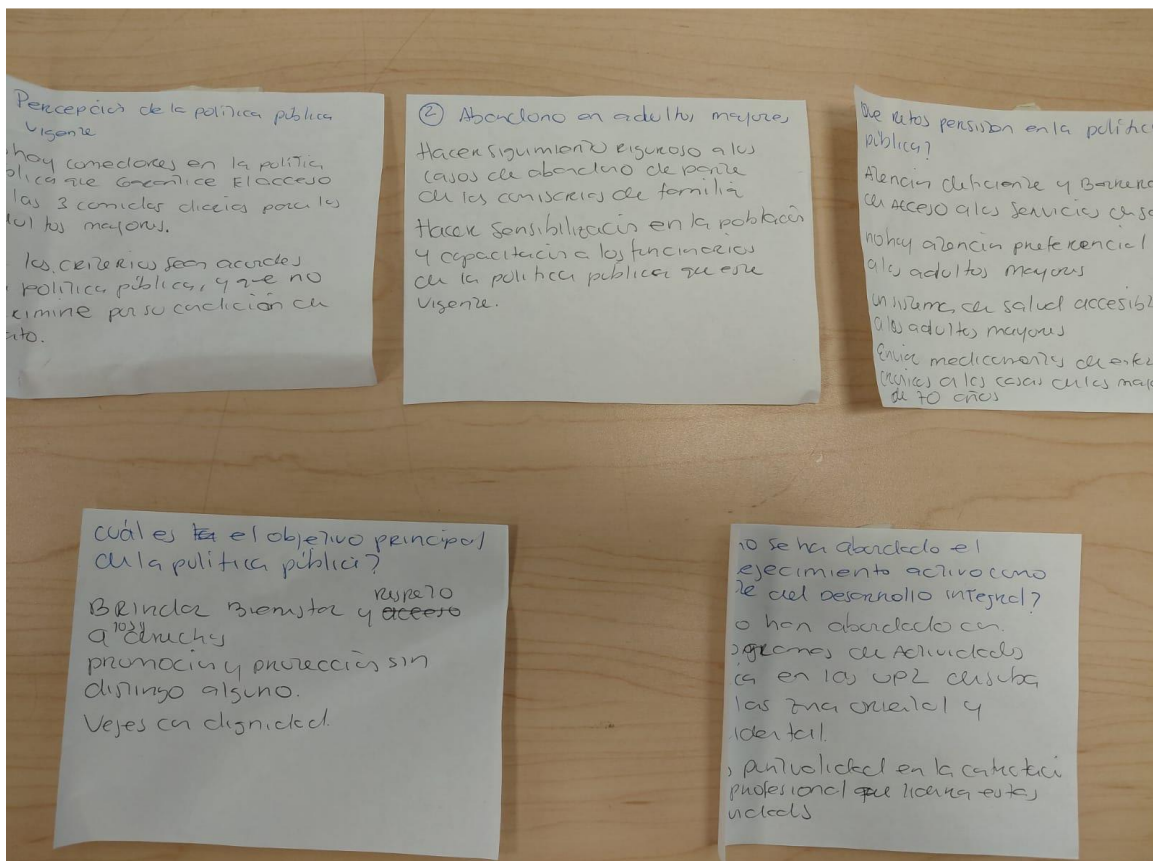 Percepción de la política pública
vigente
hay comedores en la política
blica que garantice El acceso
las 3 comidas diarias para los
ultos mayores.
los criterios sean acordes
política pública, y que no
cimine por su condición de
nto.
② Abandono en adultos mayores
Hacer siguimiento riguroso a los
casos de abandono de parte
de las comisarias de familia
Hacer sensibilización en la población
y capacitación a los funcinarios
de la política pública que este
vigente.
Que retos persisten en la polític
pública?
Atención deficiente y Barrera
de Acceso a los servicios de sa
no hay atención preferencial
a los adultos mayores
un sistema de salud accesibl
a los adultos mayores
Enviar medicamentos de
a las casas de los may
de 70 años
cuál es el objetivo principal
de la política pública?
BRindar Bienestar y respeto
a los derechos
promoción y protección sin
distingo alguno.
Vejes con dignidad.
mo se ha abordado el
ejecimiento activo como
te del Desarrollo integral?
o han abordado en
ogramas de Actividades
ca en las UPZ de suba
las zona oriental y
idental.
puntualidad en la
profesional que lidera estas
vidads